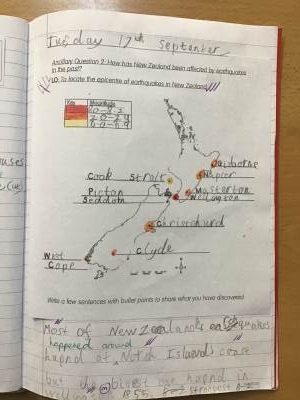 Tuesday 17th September
Ancillary Question 2: How has New Zealand been affected by earthquakes
in the past?
LO: To locate the epicentre of earthquakes in New Zealand
Key Magnitude
8.0-8.2
7.0-7.9
6.0-6.9
Gisborne
Napier
Cook Strait
Picton Masterton
Seddom Wellington
Christchurch
West
Cape
Clyde
Write a few sentences with bullet points to share what you have discovered
Most of New Zealand's earthquakes
happened around
hapnd at North Island's coast
but the bigest one hapnd in
1855 strongest 8.2